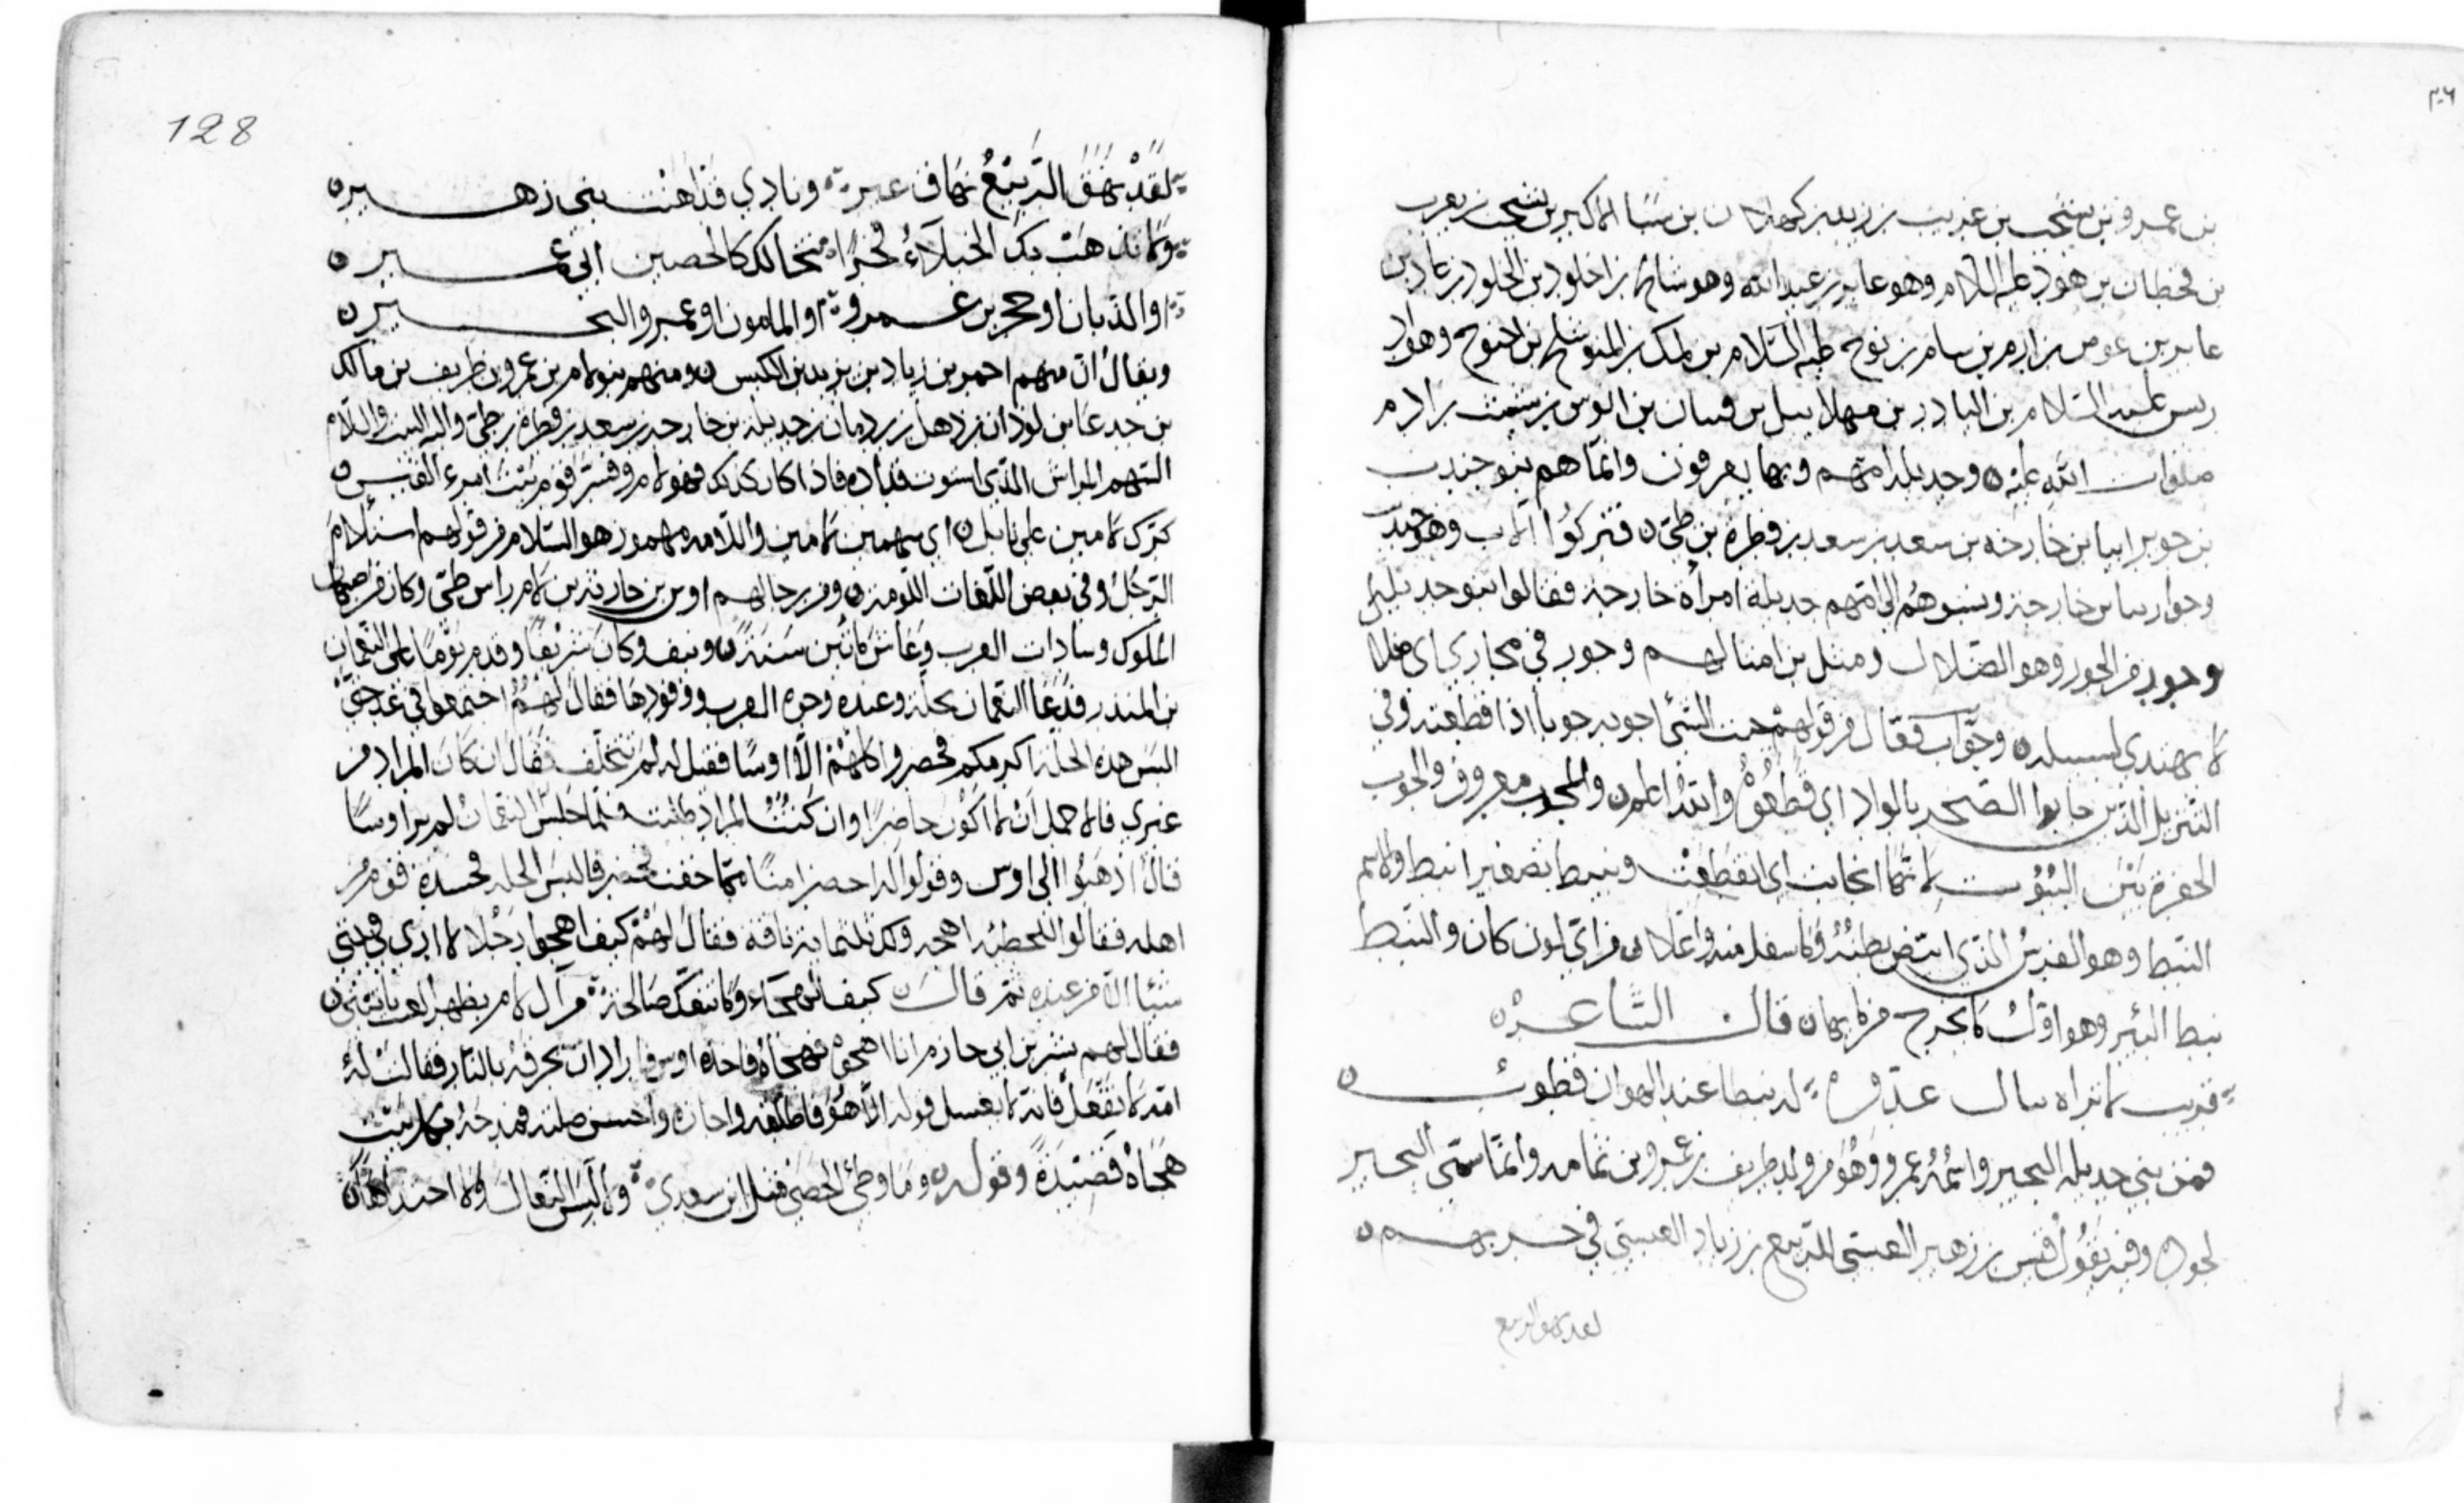 ٣٠٦
بن عمرو بن يشجب بن عريب بن زيد بن كهلان بن سبا الاكبر بن يشجب بن يعرب
بن قحطان بن هود عليه السلام وهو عابر بن عبد الله وهو شالخ بن اخلود بن الخلود بن عاد بن
عابر بن عوص بن ارم بن سام بن نوح عليه السلام بن لمك بن المتوشلخ بن اخنوخ وهو اد
ريس عليه السلام بن اليادر بن مهلاييل بن قينان بن انوس بن شيث بن ادم
صلوات الله عليه وجديلة امهم وبها يعرفون وانما هم بنو جندب
بن خارجه بن سعد بن سعد بن فطرة بن طي فتركوا الاب وهو جندب
وحور ابنا بن خارجة ونسبوهم الى امهم جديلة امراة خارجة فقالوا بنو جديلة
وحور من الحور وهو الضلال ومثل من امثالهم وحور في محارى اى ضلالا
لا يهتدي لسبيله وجواب فعال من قولهم جبت الشئ اجوبه جوبا اذا قطعته وفي
التنزيل الذين جابوا الصخر بالواد اي قطعوه والله اعلم والمجوب معروف والجوب
الحفرة بين البيوت لانها انجابت اي انقطعت ونبيط تصغير انبط والاسم
النبط وهو الفرس الذي ابيض بطنه وما سفل منه واعلاه من اي لون كان والنبط
نبط البئر وهو اول ما يخرج من مايها قال الشاعر
قريب لا ينال عدوه له نبطا عند الهوان قطوب
فمن بني جديله البحير واسمه عمرو وهو من ولد طريف بن عمرو بن ثمامه وانما سمي البحير
لجوده وفيه يقول قيس بن زهير العبسي للربيع بن زياد العبسي في حربهم
لقد نهق الربيع
128
لقد نهق الربيع نهاق عير ونادي قد اهنت بني زهير
ولا تذهب بك الخيلاء فخرا تخالك كالحصين ابي عمير
او الذبان او حجر بن عمرو او المامون او عمرو البحير
ويقال ان منهم احمر بن زياد بن يزيد بن الكيس ومنهم بنو لام بن عمرو بن طريف بن مالك
بن جدعا بن لوذان بن ذهل بن رومان بن جديلة بن خارجة بن سعد بن فطرة بن طي واليه البيت واللام
السهم المراش الذي استوت قذاده فاذا كان كذلك فهو لام وفسر قوم بيت امرء القيس
كرك لامين على نابل اي سهمين لامين واللامه مهموز هو السلام من قولهم استلام
الرجل وفي بعض اللغات اللومة ومن رجالهم اوس بن حارثة بن لام راس طي وكان من اصحاب
الملوك وسادات العرب وعاش مائتين سنة ونيف وكان شريفا وقدم يوما على النعمان
بن المنذر فدعا النعمان بحلة وعنده وجوه العرب ووفودها فقال لهم اجتمعوا في غد حتى
البس هذه الحلة اكرمكم فحضروا كلهم الا اوسا فقيل له لم تتخلف فقال ان كان المراد من
غيري فالاجمل ان لا اكون حاضرا وان كنت المراد طلبت فلما جلس النعمان لم ير اوسا
قال اذهبوا الى اوس وقولوا له احضر امنا مما خفت فحضر فالبس الحله فحسده قوم من
اهله فقالوا للحطيئه اهجه ولك ثلثماية ناقة فقال لهم كيف اهجوا رجلا لا ارى في بيتي
شيئا الا من عنده ثم قال كيف الهجاء وما تنفك صالحة من آل لام بظهر الغيب تاتيني
فقال لهم بشر بن ابي حازم انا اهجوه فهجاه فاخذه اوس واراد ان يحرقه بالنار فقالت له
امه لا تفعل فانه لا يغسل قوله الا هو فاطلقه واجازه واحسن صلته فمدحه بكل بيت
هجاه قصيدة وقوله وما وطي الحصى مثل ابن سعدي ولا لبس النعال ولا احتذاها